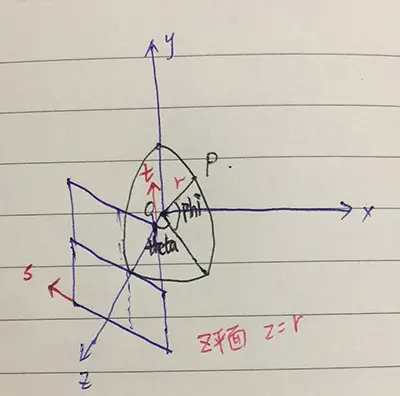 y
P.
t
r
O
phi
x
theta
s
z平面 z=r
z